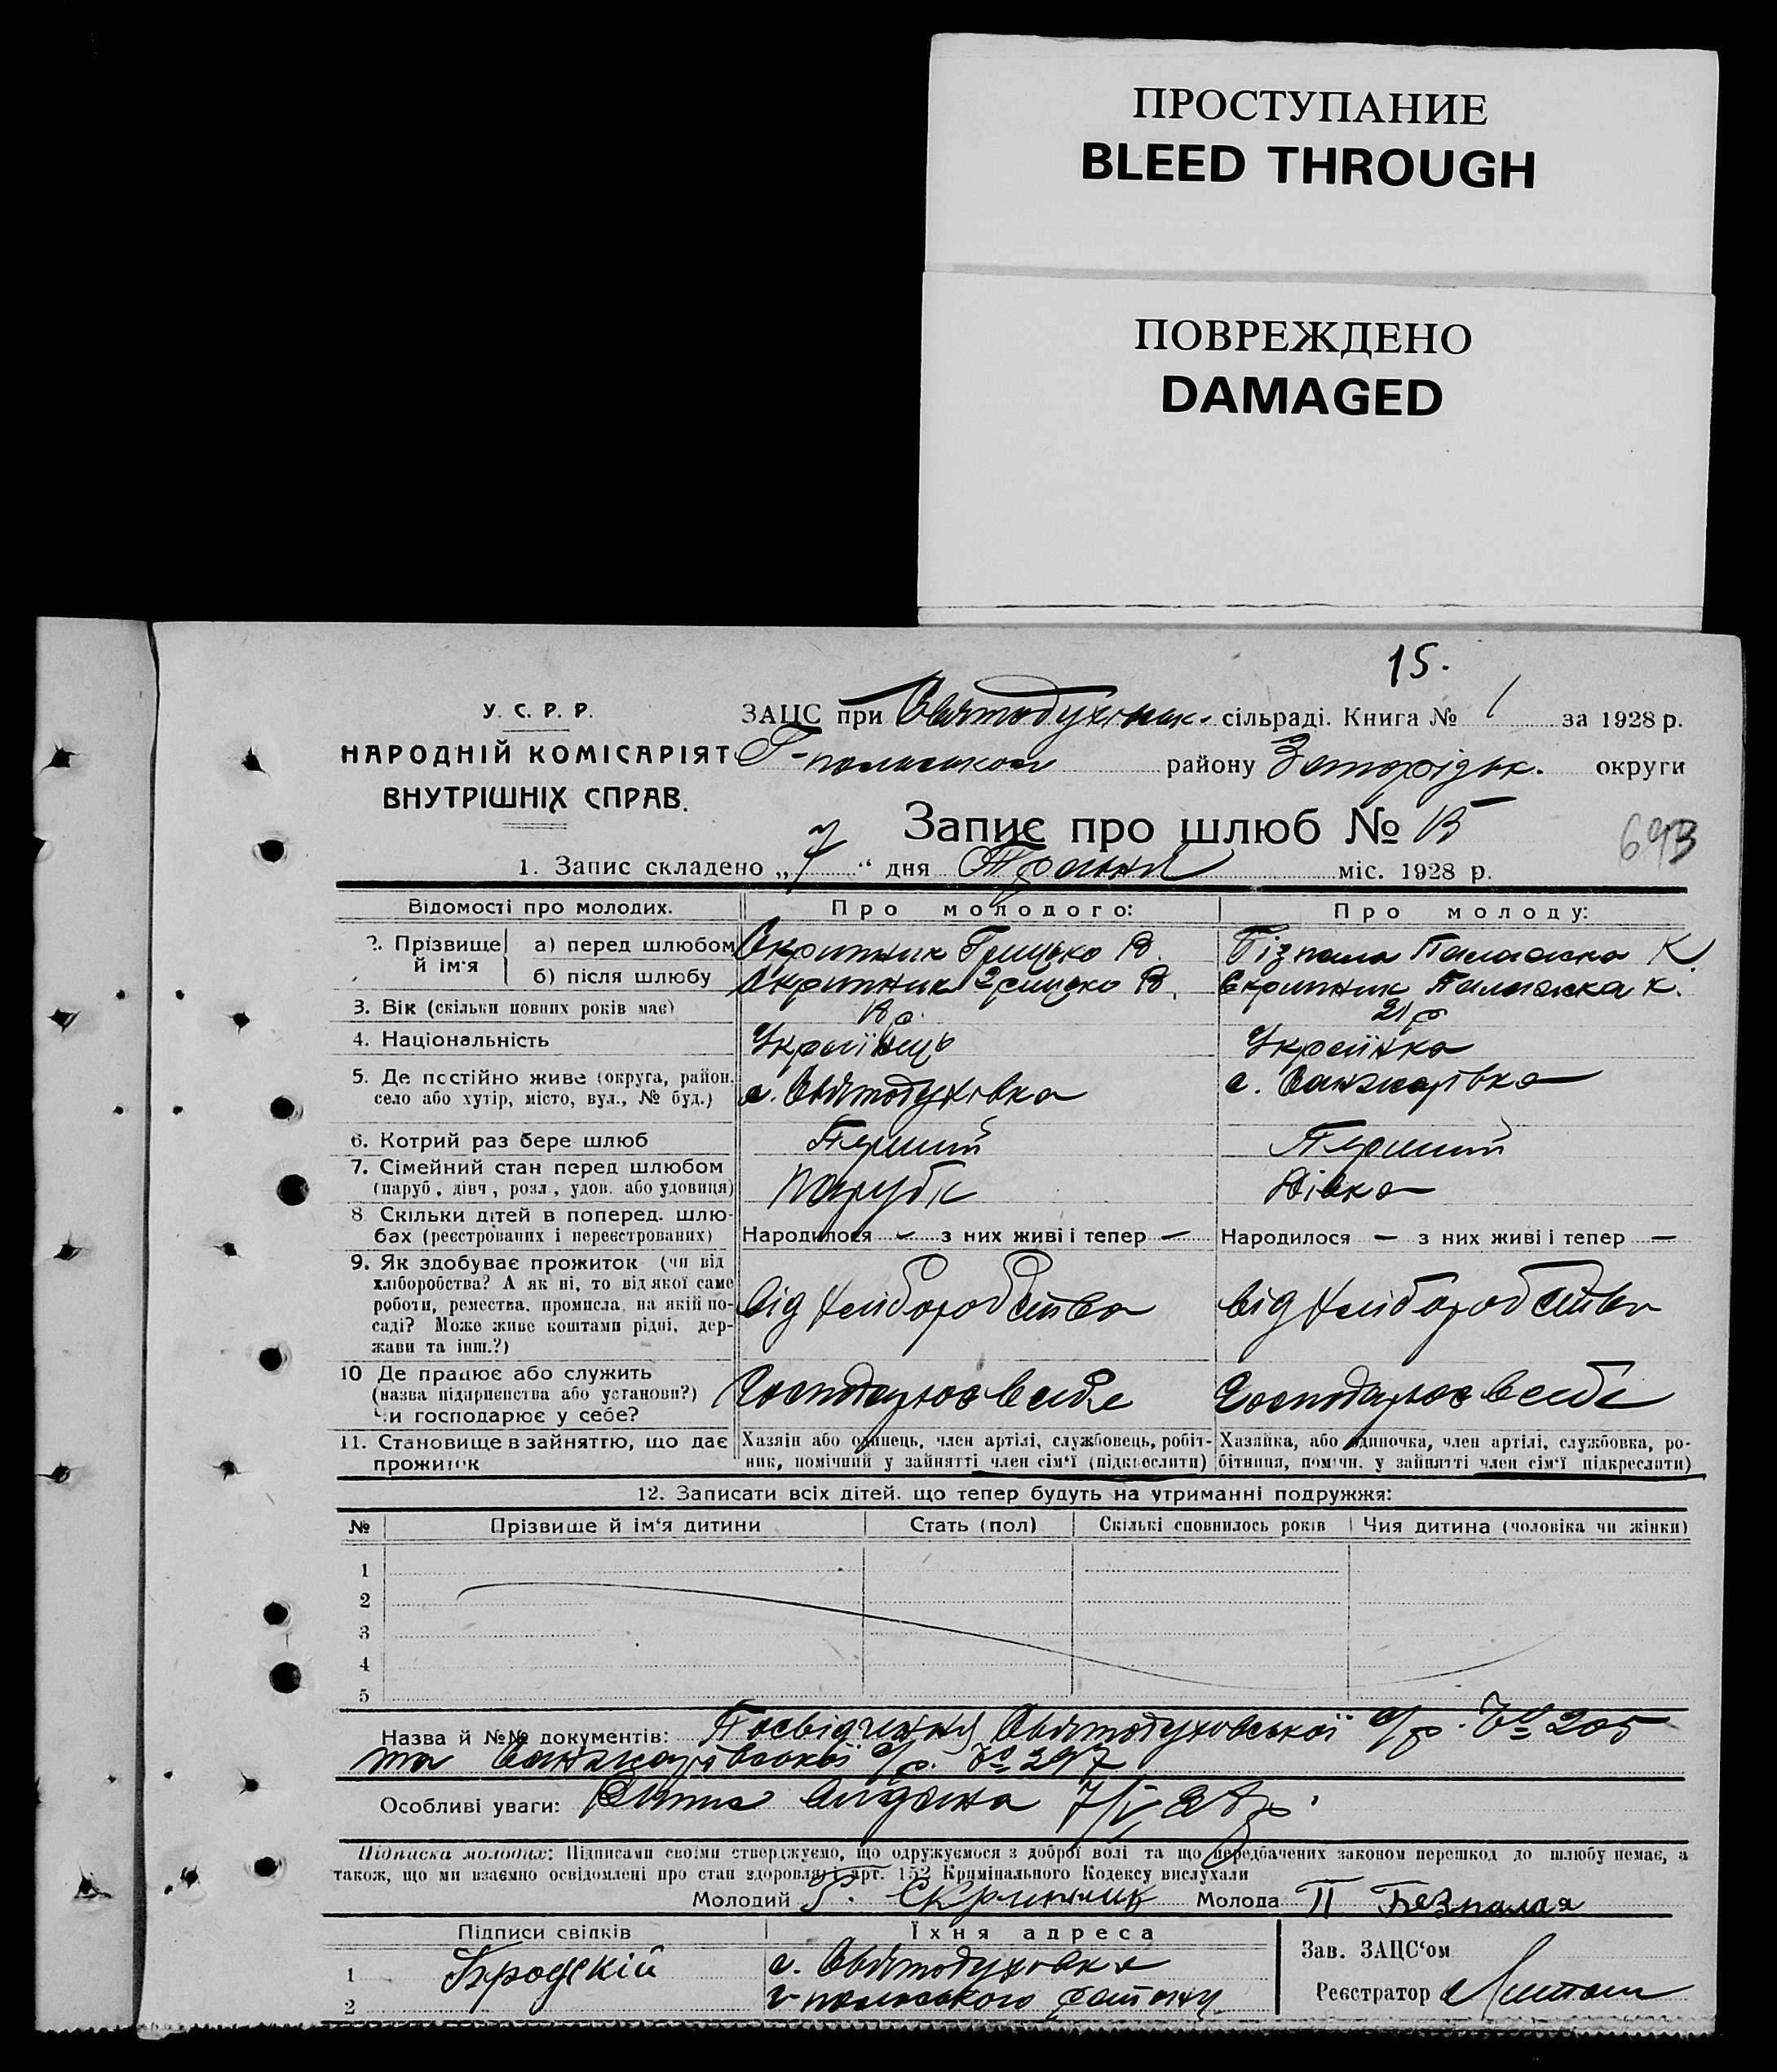 ПРОСТУПАНИЕ
BLEED THROUGH
ПОВРЕЖДЕНО
DAMAGED
15.
У. С. Р. Р.
НАРОДНІЙ КОМІСАРІЯТ
ВНУТРІШНІХ СПРАВ.
ЗАЦС при Святодухівськ. сільраді. Книга № 1 за 1928 р.
району Запорізьк. округи
Запис про шлюб № 15
693
1. Запис складено „7“ дня Травня міс. 1928 р.
Відомості про молодих. Про молодого: Про молоду:
2. Прізвище й ім'я а) перед шлюбом Скрипник Грицько В. Бізпала Палажка К.
б) після шлюбу Скрипник Грицько В. Скрипник Палажка К.
3. Вік (скільки повних років має) 18 р. 21 р
4. Національність Українець Українка
5. Де постійно живе (округа, район, село або хутір, місто, вул., № буд.) с. Святодухівка с. Санжарівка
6. Котрий раз бере шлюб Перший Перший
7. Сімейний стан перед шлюбом (паруб, дівч, розл, удов. або удовиця) Парубк Дівка
8. Скільки дітей в поперед. шлюбах (реєстрованих і нереєстрованих) Народилося — з них живі і тепер — Народилося — з них живі і тепер —
9. Як здобуває прожиток (чи від хліборобства? А як ні, то від якої саме роботи, ремества, промисла, на якій посаді? Може живе коштами рідні, держави та інш.?) від хліборобства від хліборобства
10 Де працює або служить (назва підприємства або установи?) Чи господарює у себе? Господарює в себе Господарює в себе
11. Становище в зайняттю, що дає прожиток Хазяїн або одинець, член артілі, службовець, робітник, помічний у зайнятті член сім'ї (підкреслити) Хазяйка, або одиночка, член артілі, службовка, робітниця, помічн. у зайнятті член сім'ї підкреслити)
12. Записати всіх дітей. що тепер будуть на утриманні подружжя:
№ Прізвище й ім'я дитини Стать (пол) Скількі сповнилось років Чия дитина (чоловіка чи жінки)
1
2
3
4
5
Назва й №№ документів: Посвідчення Святодуховської с/р. № 205
та Санжарівської с/р. № 297
Особливі уваги: видана 7/V 28 р.
Підписка молодих: Підписами своїми стверджуємо, що одружуємося з доброї волі та що передбачених законом перешкод до шлюбу немає, а
також, що ми взаємно освідомлені про стан здоровля і арт. 152 Кримінального Кодексу вислухали
Молодий Г. Скрипник Молода П Безпалая
Підписи свідків Їхня адреса
1 Бродскій с. Святодухівка
2 району
Зав. ЗАЦС'ом
Реєстратор